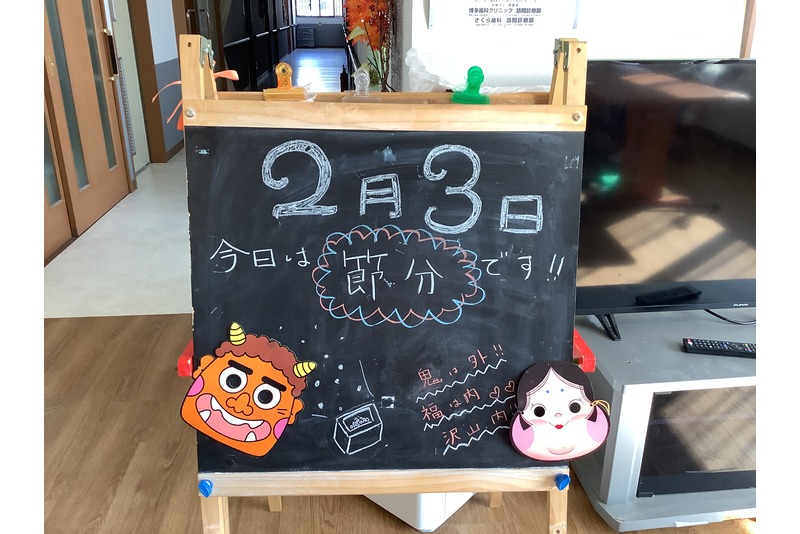 博多歯科クリニック 訪問診療部
さくら歯科 訪問診療部
2月3日
今日は節分です!!
鬼は外!!
福は内♡♡
沢山内!!